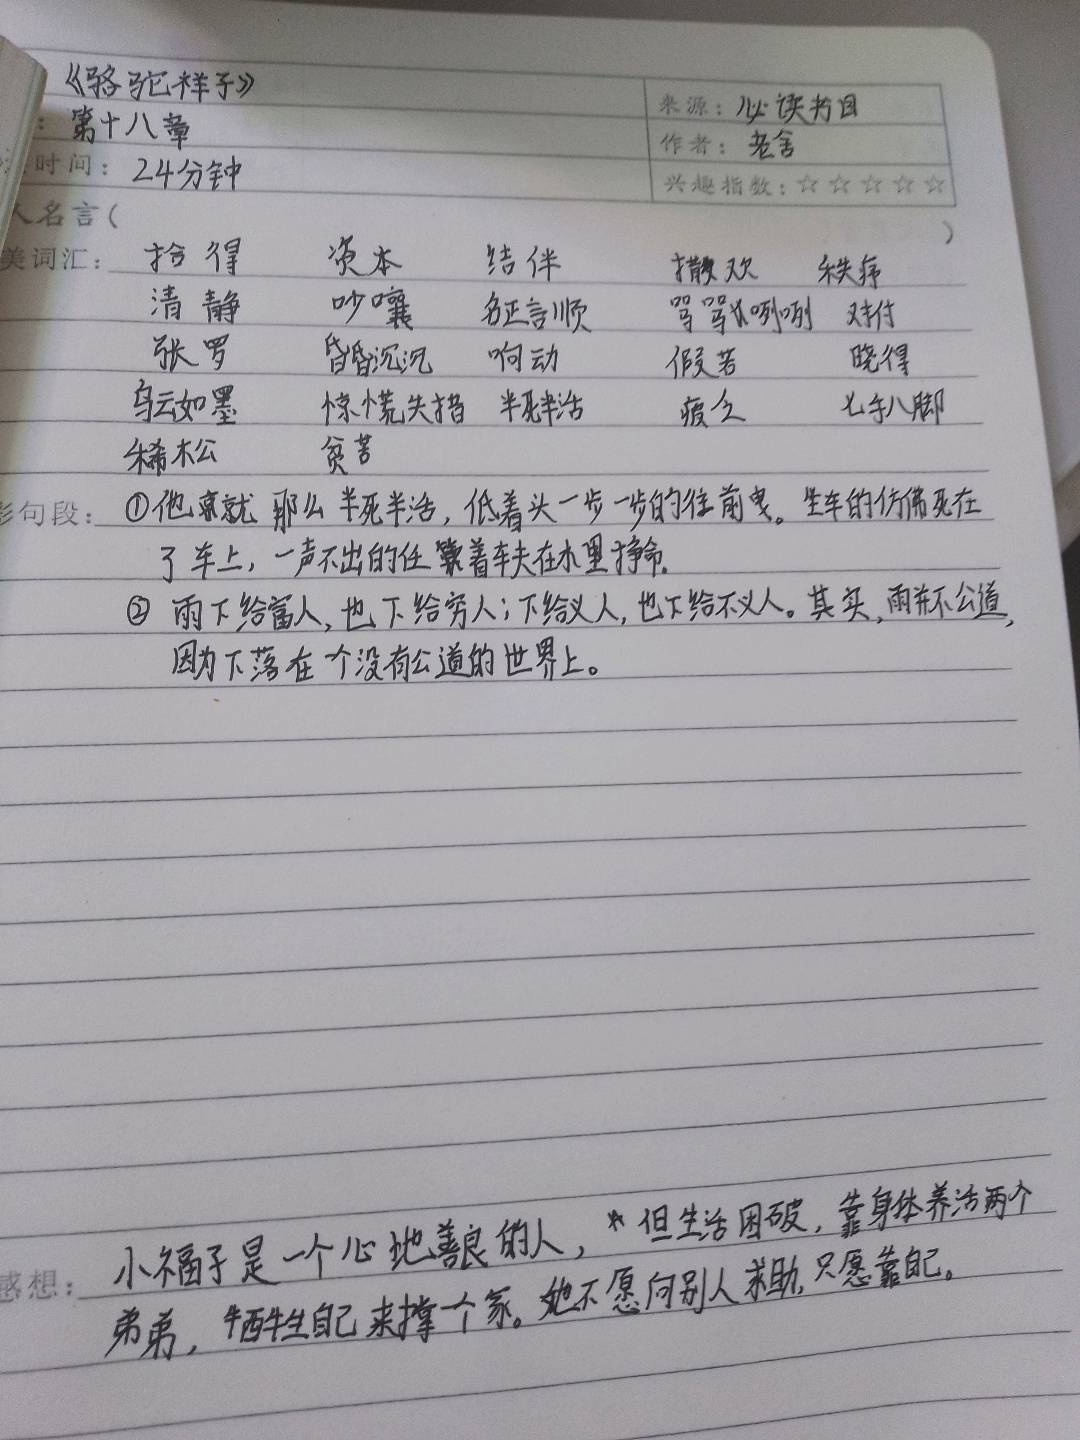 《骆驼祥子》
来源：必读书目
：第十八章
作者：老舍
时间：24分钟
兴趣指数：☆☆☆☆☆
人名言（ ）
美词汇：拾得 资本 结伴 撒欢 秩序
清静 吵嚷 名正言顺 骂骂咧咧 对付
张罗 昏昏沉沉 响动 假若 晓得
乌云如墨 惊慌失措 半死半活 疲乏 七手八脚
稀松 贫苦
彩句段：①他就那么半死半活，低着头一步一步的往前曳。坐车的仿佛死在
了车上，一声不出的任着车夫在水里挣命。
② 雨下给富人，也下给穷人；下给义人，也下给不义人。其实，雨并不公道，
因为下落在一个没有公道的世界上。
小福子是一个心地善良的人，但生活困破，靠身体养活两个
感想：
弟弟，牺牲自己来撑一个家。她不愿向别人求助，只愿靠自己。